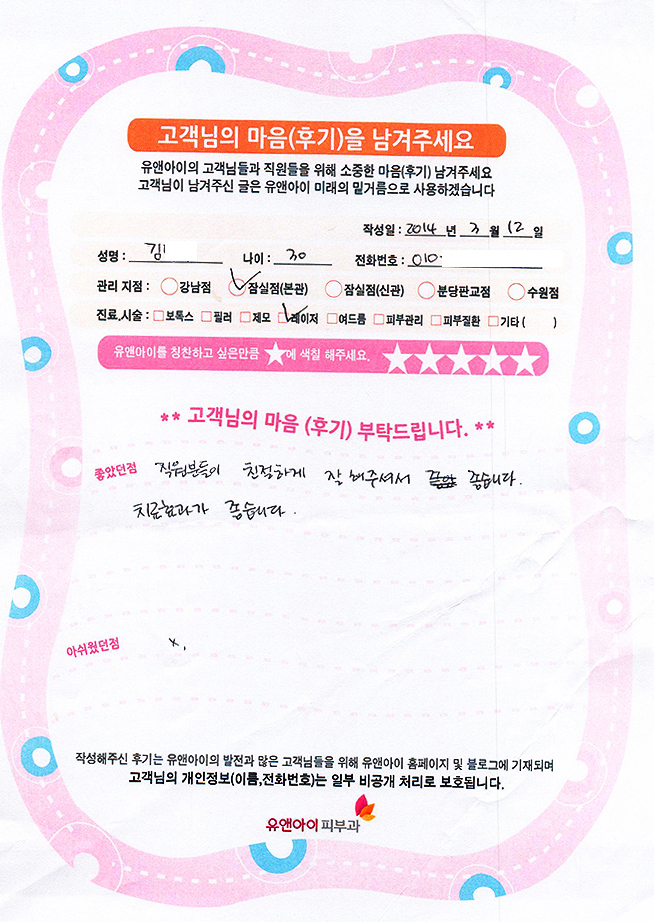 고객님의 마음(후기)을 남겨주세요
유앤아이의 고객님들과 직원들을 위해 소중한 마음(후기) 남겨주세요
고객님이 남겨주신 글은 유앤아이 미래의 밑거름으로 사용하겠습니다
작성일 : 2014 년 3 월 12 일
성명 : 김 나이 : 30 전화번호 : 010-
관리 지점 : 강남점 잠실점(본관) 잠실점(신관) 분당판교점 수원점
진료,시술 : 보톡스 필러 제모 레이저 여드름 피부관리 피부질환 기타 ( )
유앤아이를 칭찬하고 싶은만큼 ★에 색칠 해주세요. ★★★★★
** 고객님의 마음 (후기) 부탁드립니다. **
좋았던점 직원분들이 친절하게 잘 해주셔서 좋습니다.
치료효과가 좋습니다.
아쉬웠던점 x.
작성해주신 후기는 유앤아이의 발전과 많은 고객님들을 위해 유앤아이 홈페이지 및 블로그에 기재되며
고객님의 개인정보(이름,전화번호)는 일부 비공개 처리로 보호됩니다.
유앤아이피부과